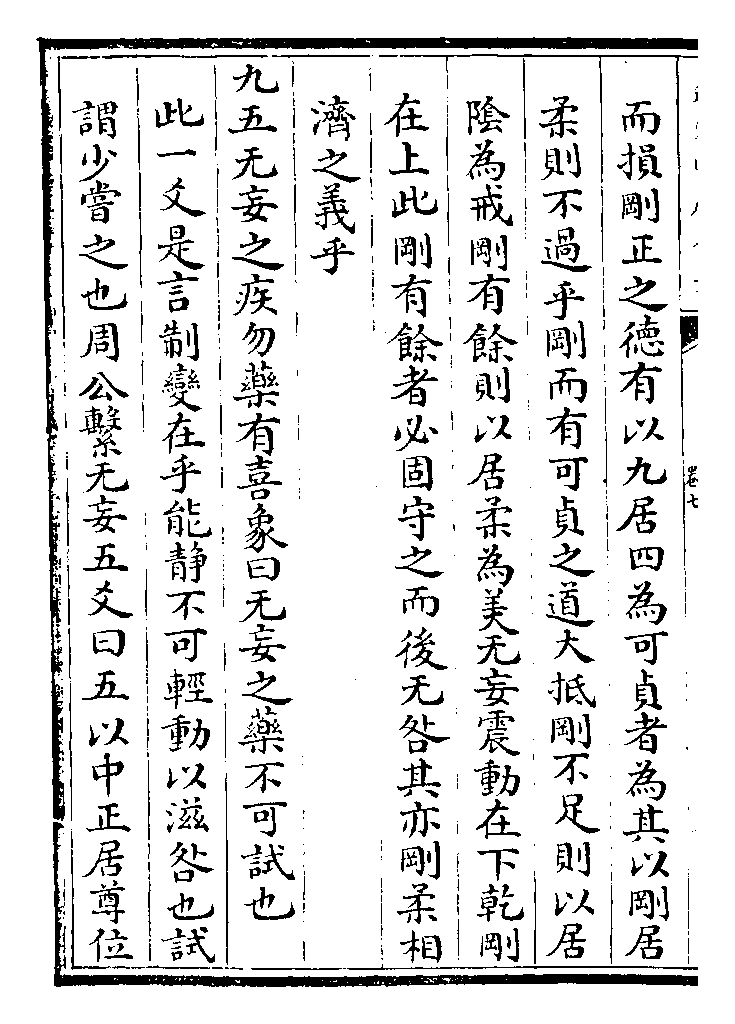 卷七
而損剛正之德有以九居四為可貞者為其以剛居
柔則不過乎剛而有可貞之道大抵剛不足則以居
陰為戒剛有餘則以居柔為美无妄震動在下乾剛
在上此剛有餘者必固守之而後无咎其亦剛柔相
濟之義乎
九五无妄之疾勿藥有喜象曰无妄之藥不可試也
此一爻是言制變在乎能静不可輕動以滋咎也試
謂少嘗之也周公繫无妄五爻曰五以中正居尊位